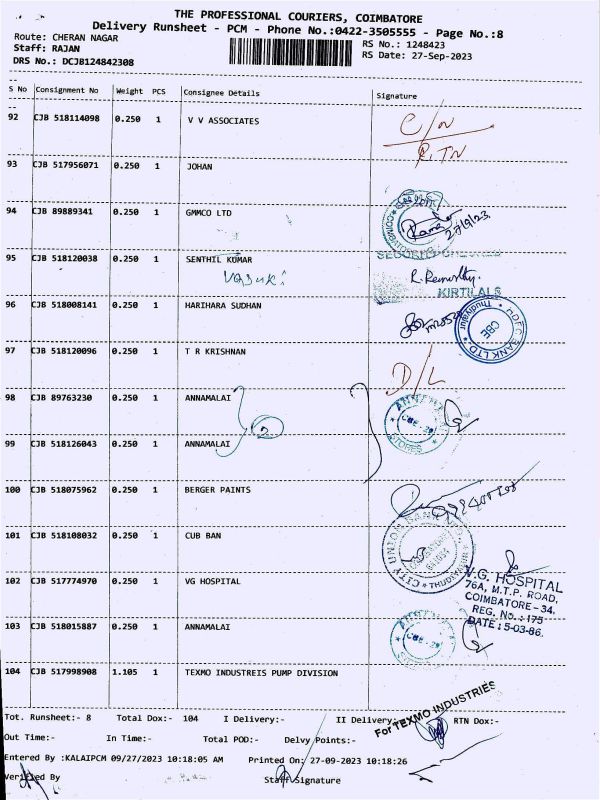 THE PROFESSIONAL COURIERS, COIMBATORE
Delivery Runsheet - PCM - Phone No.:0422-3505555 - Page No.:8
Route: CHERAN NAGAR RS No.: 1248423
Staff: RAJAN RS Date: 27-Sep-2023
DRS No.: DCJB124842308
S No Consignment No Weight PCS Consignee Details Signature
92 CJB 518114098 0.250 1 V V ASSOCIATES
C/N
RTN
93 CJB 517956071 0.250 1 JOHAN
94 CJB 89889341 0.250 1 GMMCO LTD
27/9/23
95 CJB 518120038 0.250 1 SENTHIL KUMAR
KIRTILALS
96 CJB 518008141 0.250 1 HARIHARA SUDHAN
HDFC BANK LTD * Thudiyalur *
CBE
97 CJB 518120096 0.250 1 T R KRISHNAN
D/L
98 CJB 89763230 0.250 1 ANNAMALAI
2
ANNAMALAI
CBE - 29
STORES
99 CJB 518126043 0.250 1 ANNAMALAI
100 CJB 518075962 0.250 1 BERGER PAINTS
101 CJB 518108032 0.250 1 CUB BAN
CITY UNION BANK LTD.
102 CJB 517774970 0.250 1 VG HOSPITAL
V.G. HOSPITAL
76A, M.T.P. ROAD,
COIMBATORE - 34.
REG. No. : 175
DATE : 5-03-86.
103 CJB 518015887 0.250 1 ANNAMALAI
ANNAMALAI
CBE - 29
104 CJB 517998908 1.105 1 TEXMO INDUSTREIS PUMP DIVISION
For TEXMO INDUSTRIES
Tot. Runsheet:- 8 Total Dox:- 104 I Delivery:- II Delivery:- RTN Dox:-
Out Time:- In Time:- Total POD:- Delvy Points:-
Entered By :KALAIPCM 09/27/2023 10:18:05 AM Printed On: 27-09-2023 10:18:26
Verified By Staff Signature